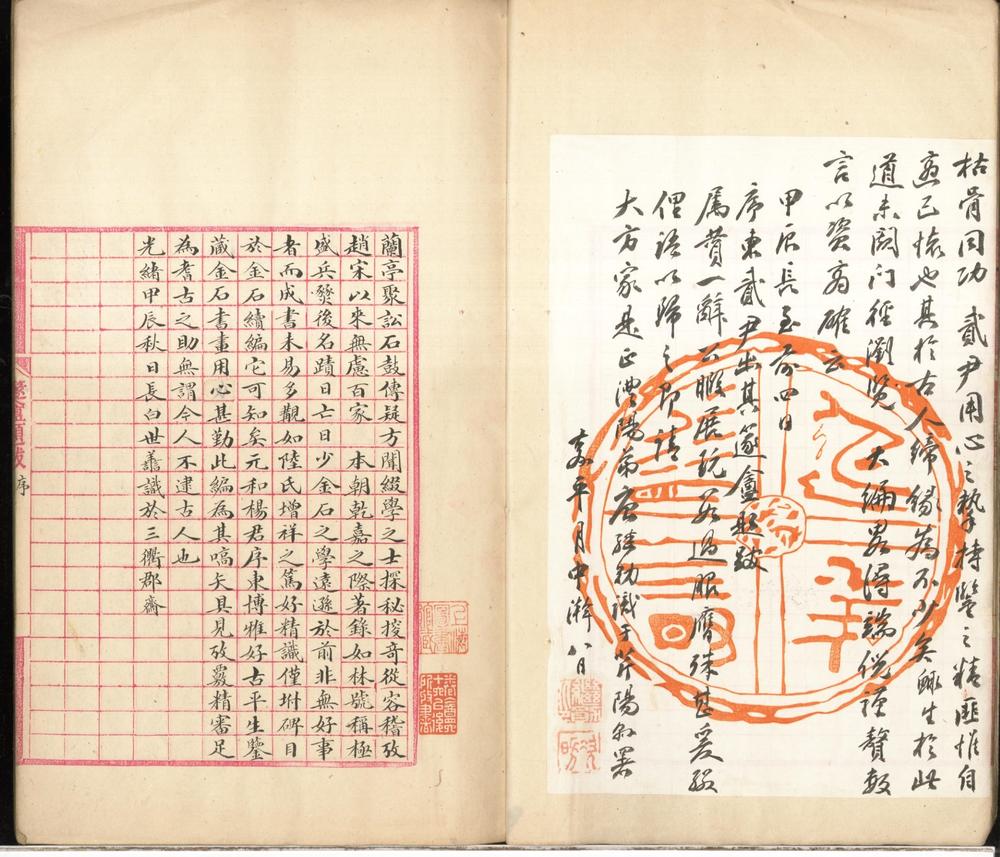 枯骨同功 貳尹用心之摯持鑒之精匪惟自
憙已懷也其於古人締緣為不少矣鲰生於此
道未闚門徑瀏覽大編畧得端倪謹贅數
言以資商確云
甲辰長至前四日
序東貳尹出其籧盦題跋
屬贊一辭公暇展玩若過眼膺殊甚爰綴
俚語以歸之即請
大方家是正澧陽弟唐 識于芹陽外署
嘉平月中澣八日
蘭亭聚訟石鼓傳疑方聞綴學之士探秘搜奇從容稽攷
趙宋以來無慮百家 本朝乾嘉之際著錄如林號稱極
盛兵燹後名蹟日亡日少金石之學遠遜於前非無好事
者而成書未易多觀如陸氏增祥之篤好精識僅坿碑目
於金石續編它可知矣元和楊君序東博雅好古平生鑒
藏金石書畫用心甚勤此編為其嚆矢具見攷覈精審足
為耆古之助無謂今人不逮古人也
光緒甲辰秋日長白世善識於三衢郡齋
題跋 序